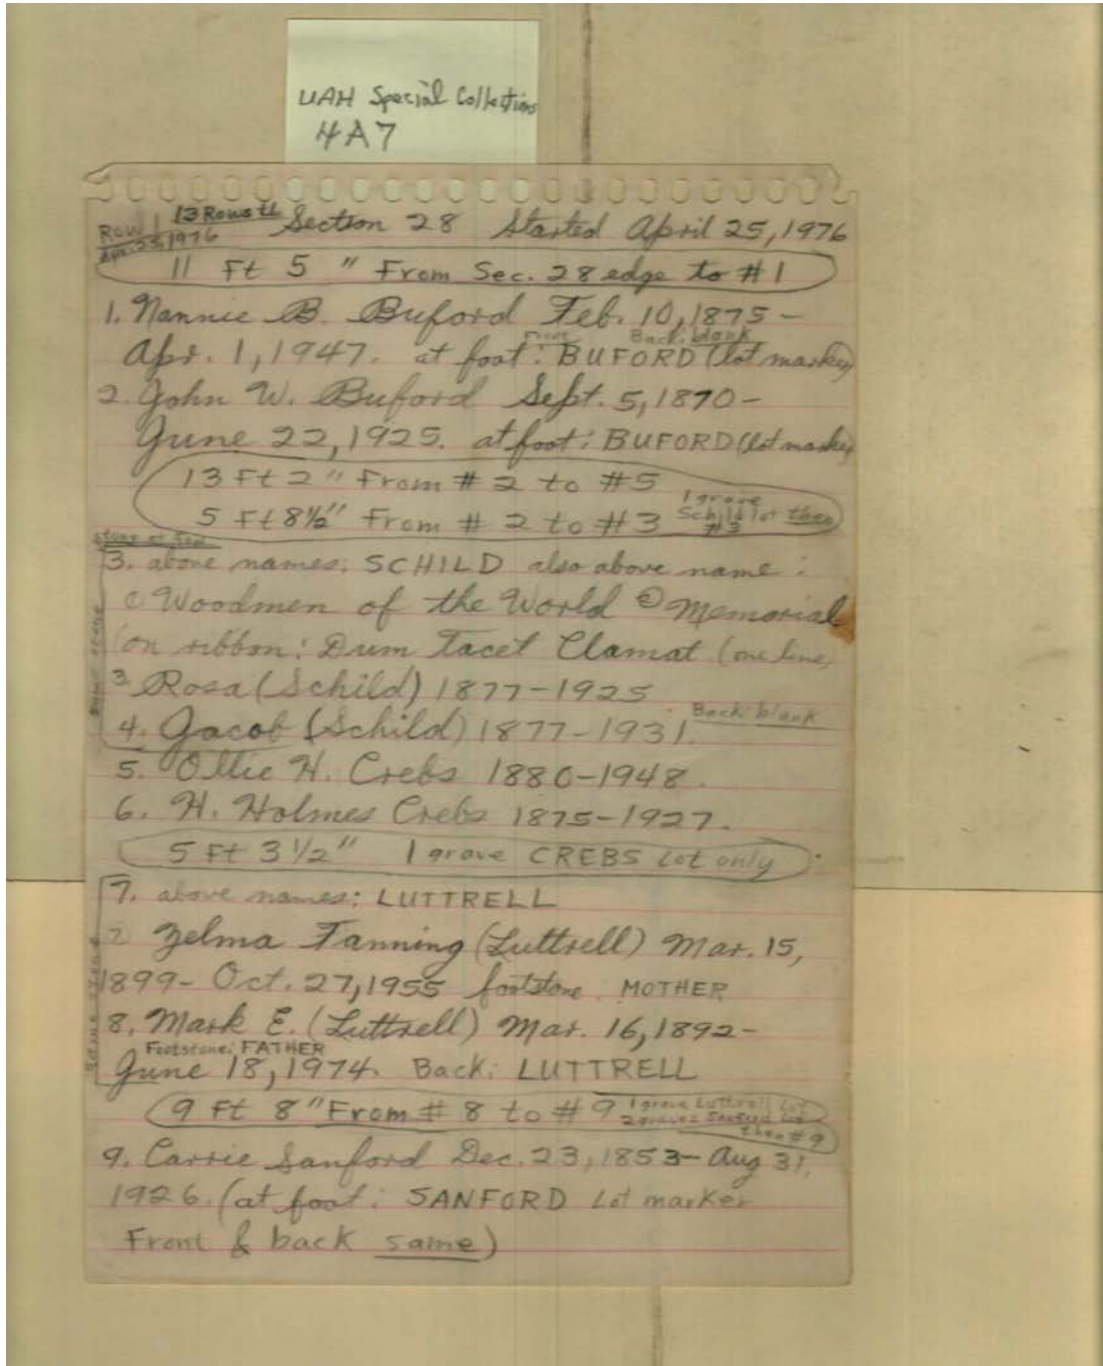 UAH Special Collections
4A7
Row 1 13 Rows
Apr. 25, 1976
Section 28 Started April 25, 1976
11 Ft 5 " From Sec. 28 edge to #1
1. Nannie B. Buford Feb. 10, 1875 -
Front Back: blank
Apr. 1, 1947. at foot: BUFORD (lot marker)
2. John W. Buford Sept. 5, 1870 -
June 22, 1925. at foot: BUFORD (lot marker)
13 Ft 2 " From # 2 to #5
5 Ft 8½" From # 2 to #3 1 grave Schild lot then #3
3. above names: SCHILD also above name:
① Woodmen of the World ② Memorial
(on ribbon: Dum Tacet Clamat (one line)
same stone
3. Rosa (Schild) 1877-1925
4. Jacob (Schild) 1877-1931. Back: blank
5. Ollie H. Crebs 1880-1948.
6. H. Holmes Crebs 1875-1927.
5 Ft 3 1/2" 1 grave CREBS Lot only
7. above names: LUTTRELL
7 Zelma Fanning (Luttrell) Mar. 15,
1899- Oct. 27, 1955 footstone: MOTHER
same stone
8. Mark E. (Luttrell) Mar. 16, 1892-
Footstone: FATHER
June 18, 1974. Back: LUTTRELL
9 Ft 8" From # 8 to # 9 1 grave Luttrell Lot
2 graves Sanford Lot
then #9
9. Carrie Sanford Dec. 23, 1853- Aug 31,
1926. (at foot: SANFORD Lot marker
Front & back same)